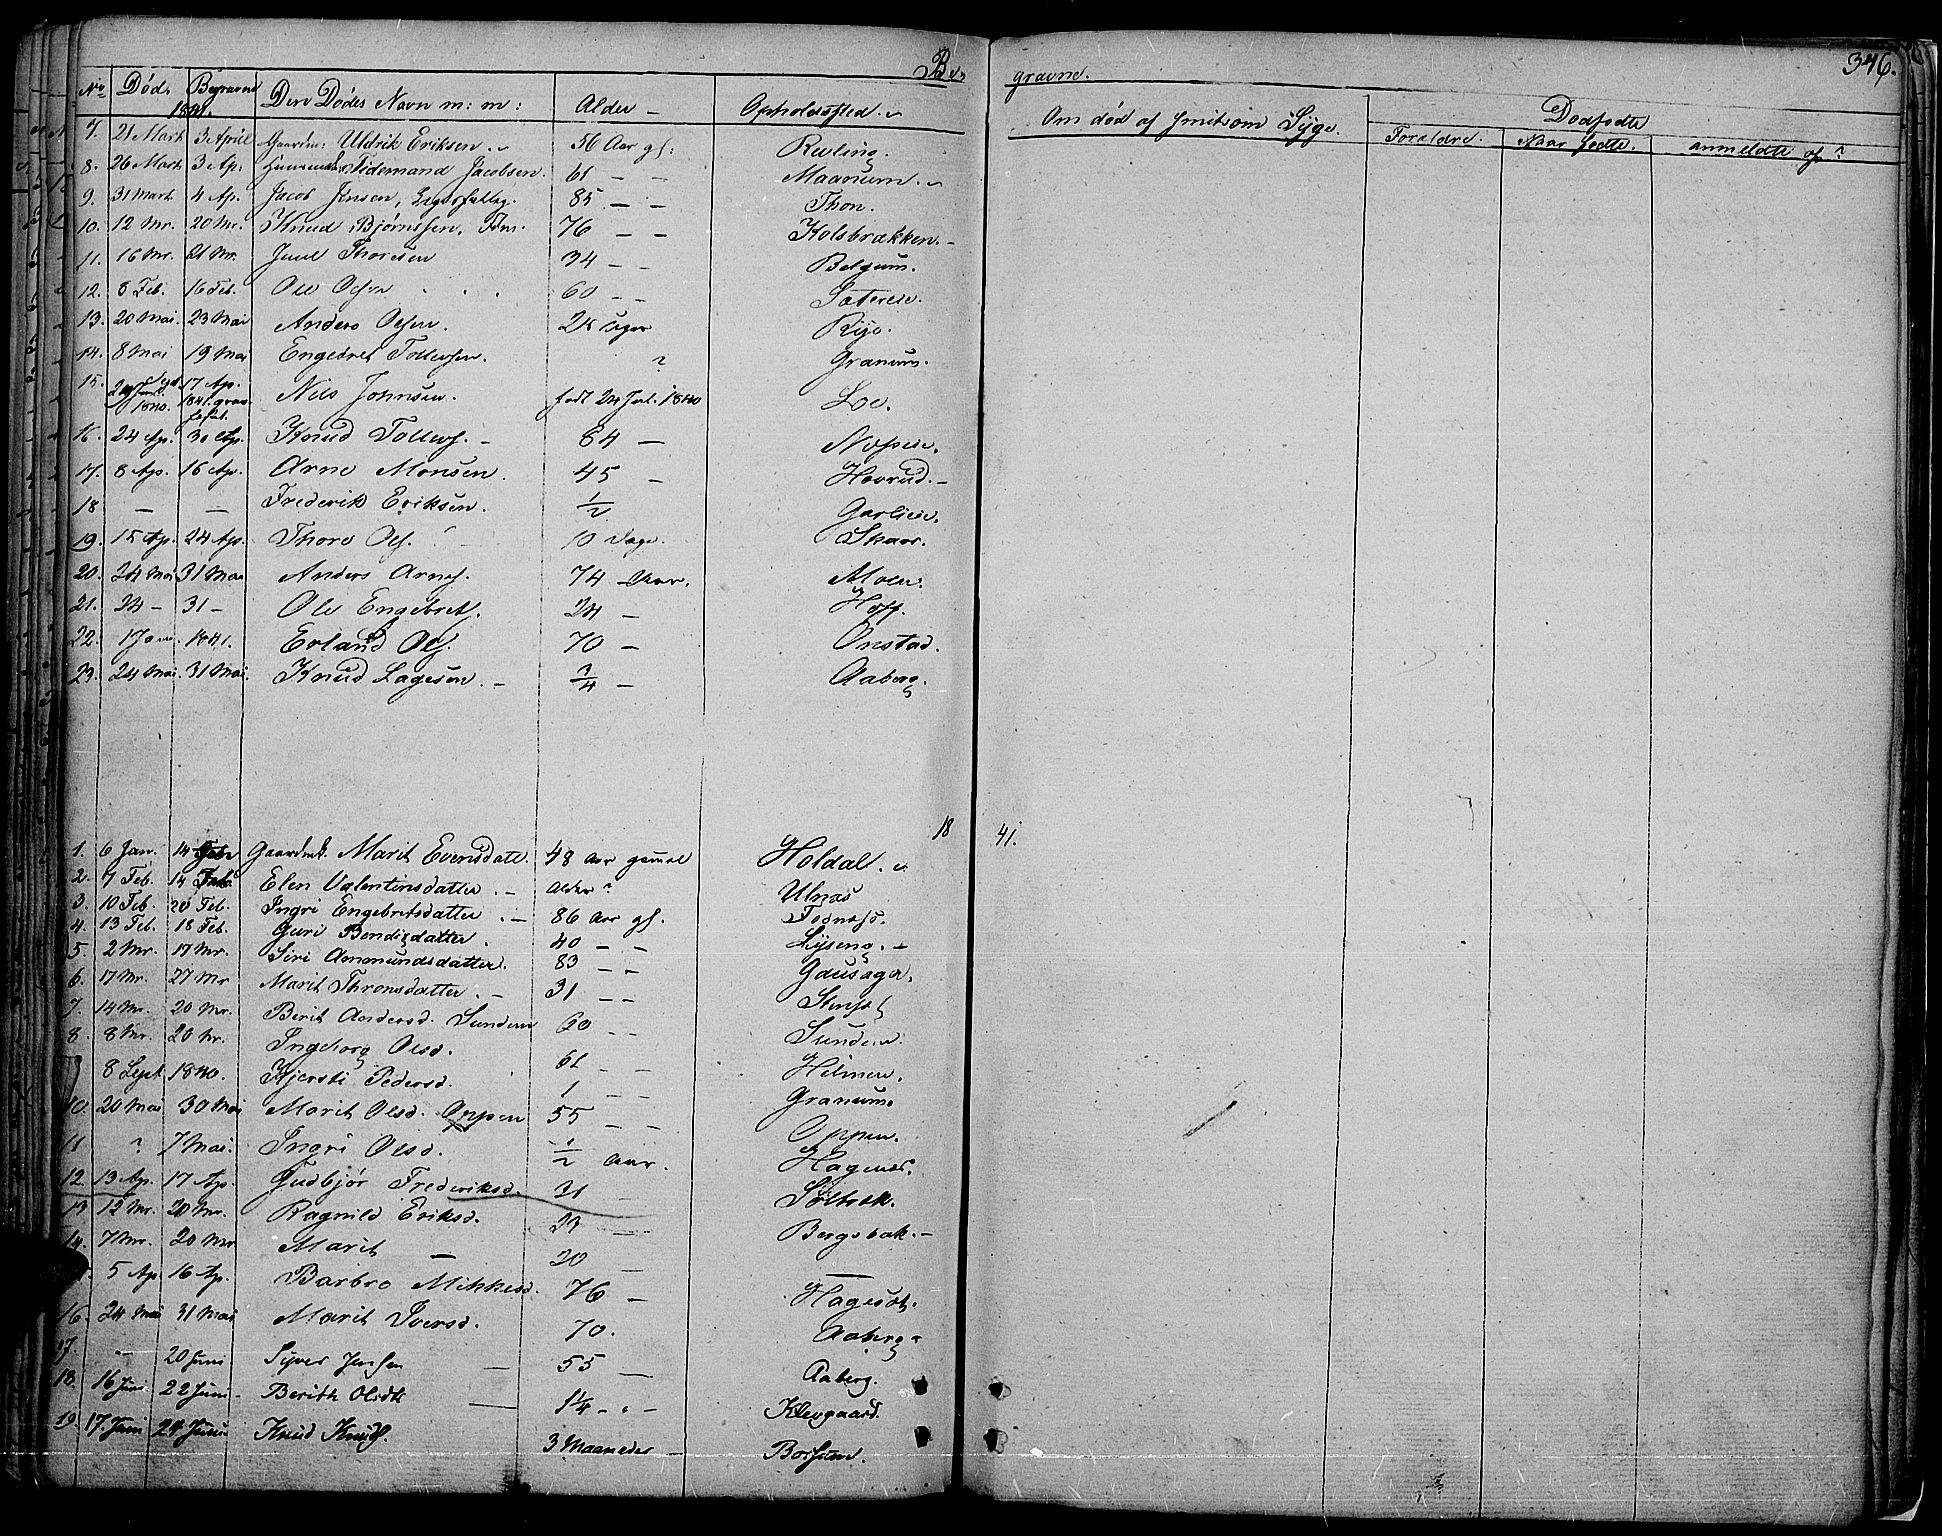 Be- gravne. 346.
No Død. Begravne 1841. Den Dødes Navn m: m: Alder - Opholdssted. Om død af smitsom Syge. Dødfødte
Forældre. Naar fødte. anmeldte af?
7. 21 Mart 3 April Gaardm: Uldrik Eriksen 56 Aar gl: Røling.
8. 26 Mart 3 Ap. Tidemand Jacobsen. 61 - - Maanum.
9. 31 Mart 4 Ap. Jacob Jensen, 85 - - Thon.
10. 12 Mr. 20 Mr. Knud Bjørnssen, 76 - - Kolsbrækken.
11. 16 Mr. 21 Mr. Juul Thoresen 34 - - Belgum.
12. 8 Feb. 16 Feb. Ole Olsen 60 - - Sætereie.
13. 20 Mai. 23 Mai Anders Olsen. 24 Uger Rye.
14. 8 Mai 19 Mai Engebret Tollefsen. ? Granum.
15. 1840. 17 Ap. 1841. Nils Johnsen. født 24 Jul. 1840 Loe.
16. 24 Ap. 30 Ap. Knud Tollefs. - 84 -
17. 8 Ap. 16 Ap. Arne Monsen. 45 - Hovrud. -
18 - - Frederik Eriksen. 1/2 Garlieie.
19. 15 Ap. 24 Ap. Thore Ols. 10 Dage. Skaar.
20. 24 Mai 31 Mai Anders Arnes. 74 - Aar. Moen.
21. 24 - 31 - Ole Engebret. 24 - Hoff.
22. 1 Jan. 1841. Erland Ols. 70 - Onstad.
23. 24 Mai 31 Mai. Knud Lagesen. - 3/4 - Aaberg.
18 41.
1. 6 Jan. 14 Feb Gaardmk. Marit Evensdatt. 48 Aar gamal Holdal.
2. 7 Feb. 14 Feb. Elen Valentinsdatter. - Alder? Ulnæs
3. 10 Feb. 20 Feb. Ingri Engebretsdatter. - 86 Aar gl. Fodnæss.
4. 13 Feb. 18 Feb. Guri Bendixdatter. 40 - - Lyseng. -
5. 2 Mr. 17 Mr. Siri Ammundsdatter. 83 - - Gausager.
6. 17 Mr. 27 Mr Marit Thronsdatter. - 31 - -
7. 14 Mr. 20 Mr. Berit Andersd. Sunden 60 - - Sunden.
8. 8 Mr. 20 Mr. Ingeborg Olsd. 61 - - Hilmen.
8 Sept 1840. Kjersti Pedersd. 1 - - Granum.
10. 20 Mai 30 Mai Marit Olsd. Oppen 55 - - Oppen.
11 ? 7 Mai. Ingri Olsd. 1/2 Aar. Hagenæs.
12. 13 Ap. 17 Ap. Gudbjør Frederiksd. 31 - Sølbræk.
13 12 Mr. 20 Mr. Ragnild Eriksd. 23 - Bergsbak. -
14. 7 Mr. 20 Mr Marit - 20 - -
5 Ap 16 Ap. Barbro Mikkelsd. 76 - Hagesæt.
16. 24 Mai 31 Mai Marit Iversd. 70. Aaberg.
17. - 20 Juni Syver Jensen - 55 - Aaberg.
18. 16 Juni. 22 Juni - Berith Olsdtr - 1 1/4 - - - Klevgaard.
19. 17 Juni 24 Juni Knud Knuds. 3 Maaneder - Børsum.